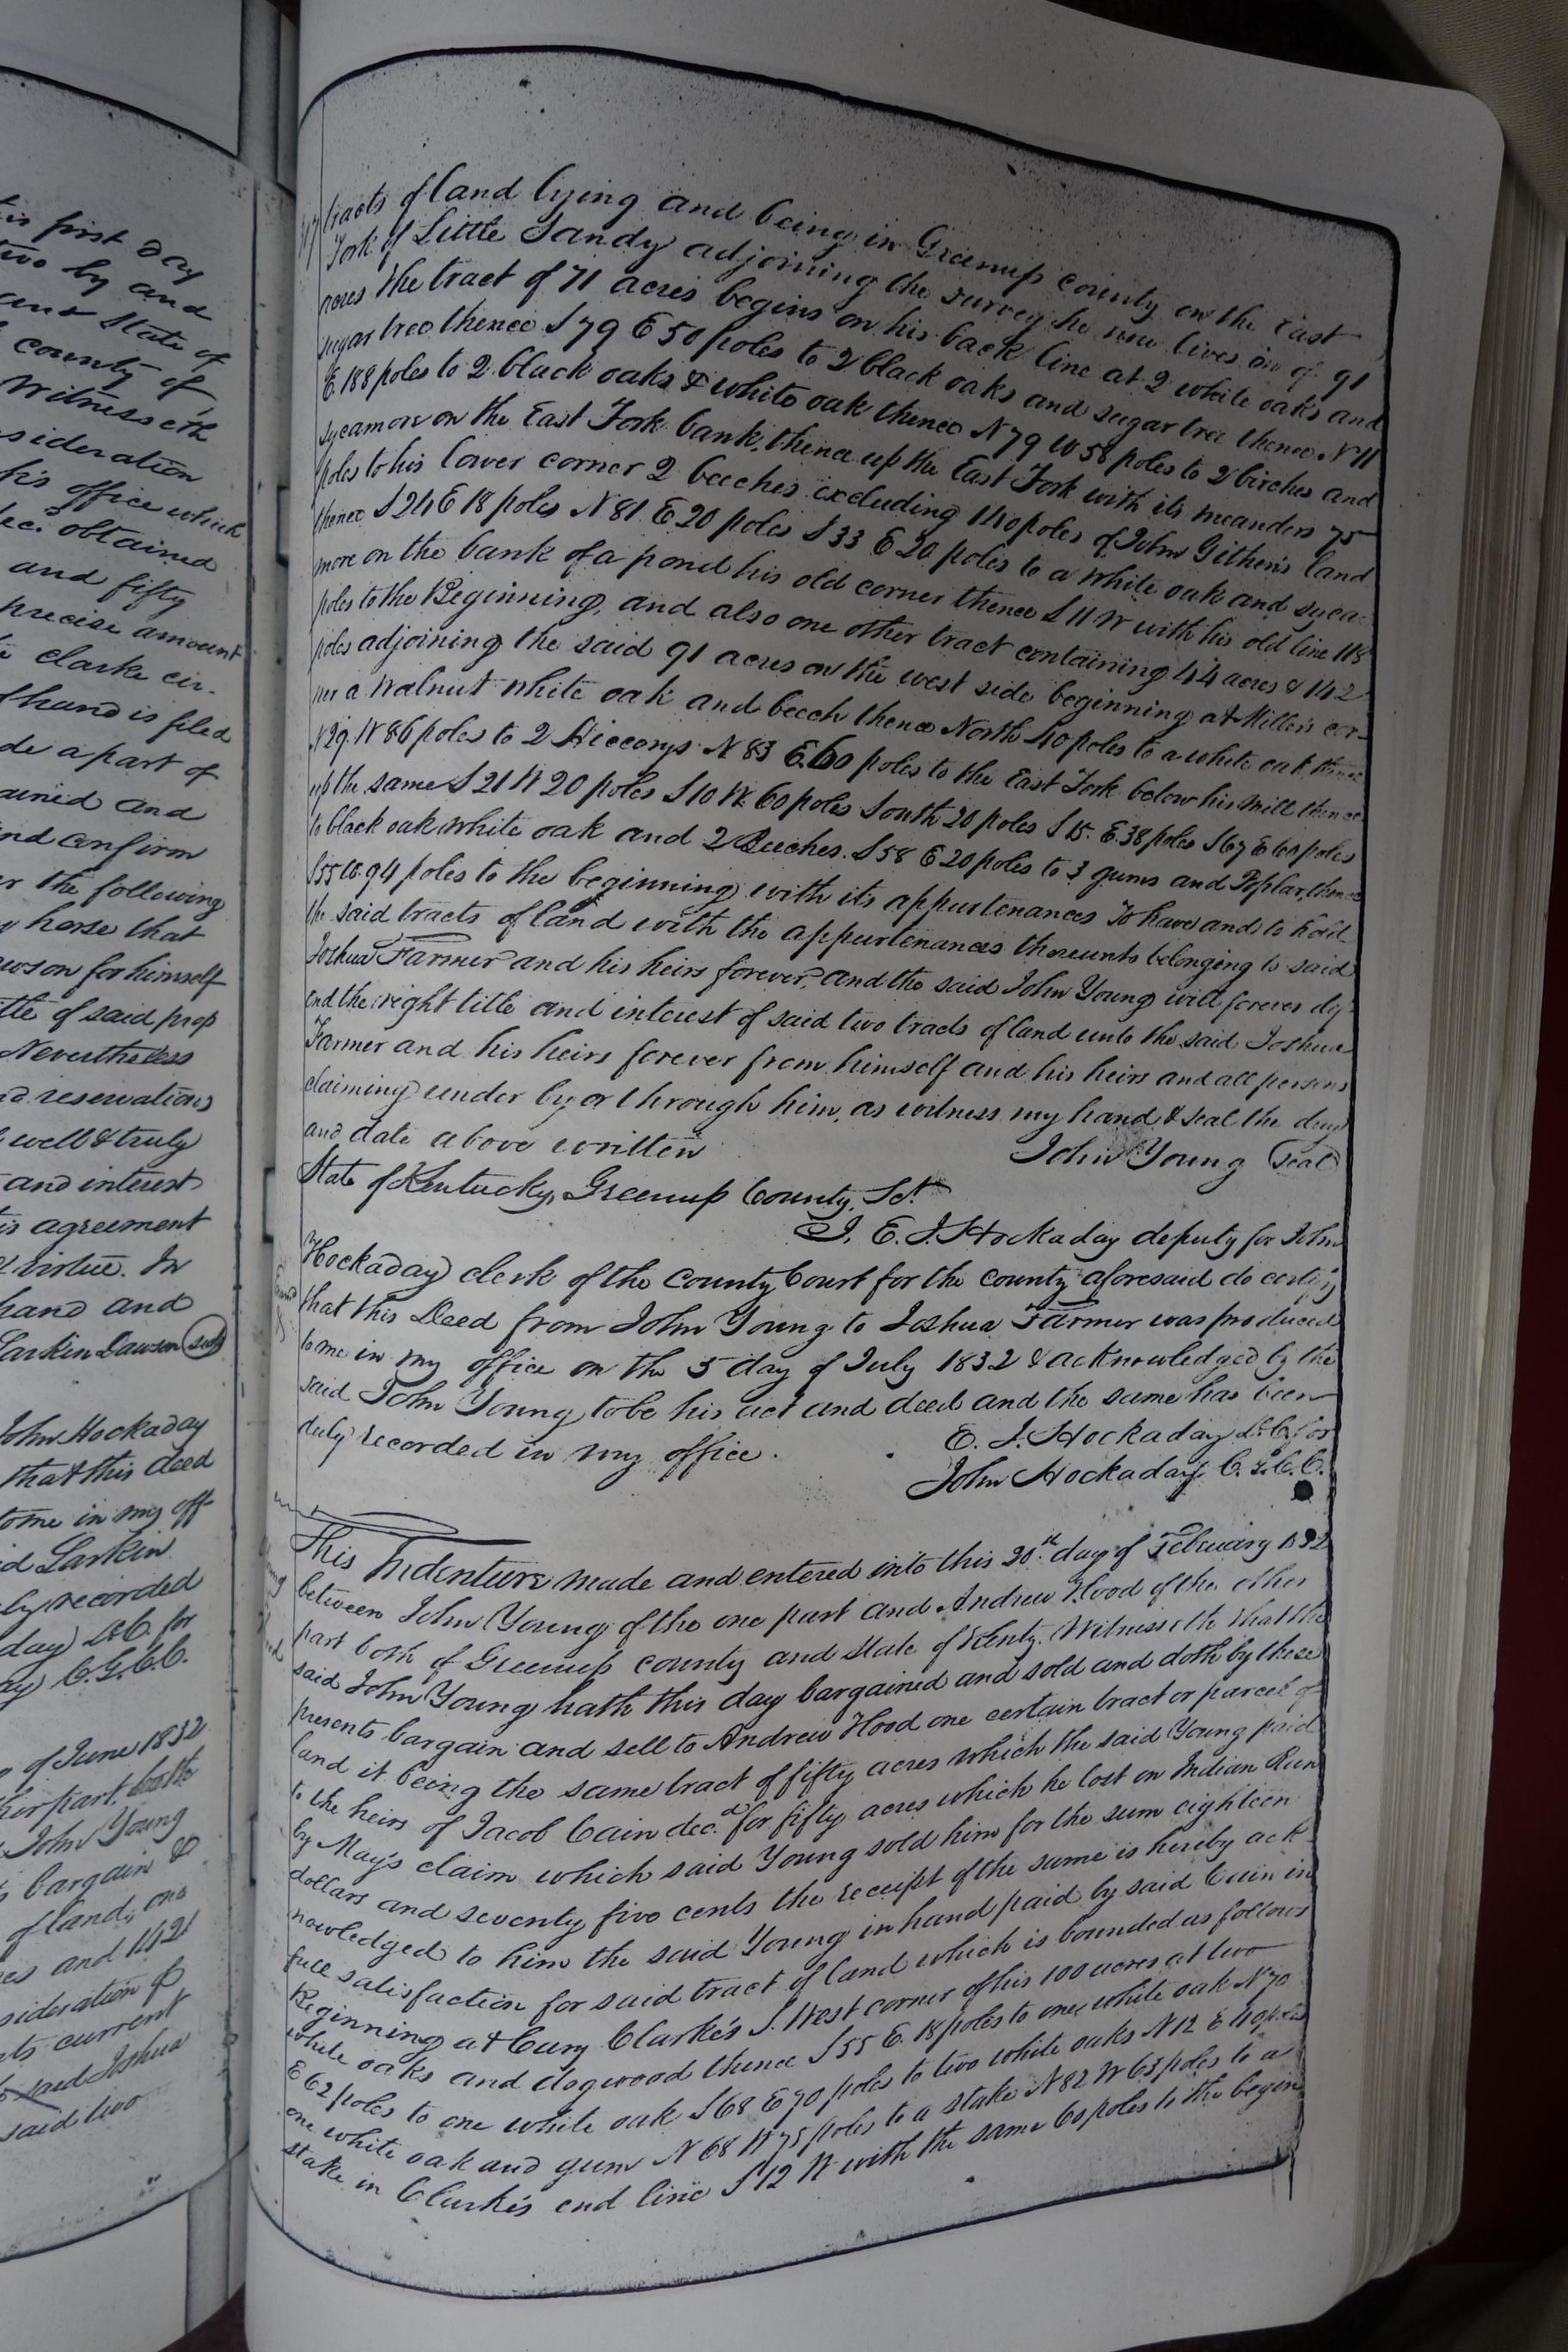 is first day
two by and
and State of
county of
Witnesseth
sideration
his office which
dec.d obtained
and fifty
precise amount
clarke cir-
f hand is filed
de a part of
ained and
nd confirm
er the following
horse that
wson for himself
tle of said prop
Nevertheless
nd reservations
well & truly
and interest
is agreement
virtue. In
hand and
Larkin Dawson (seal)
John Hockaday
that this deed
to me in my off
id Larkin
ly recorded
day D.C. for
ay C.G.C.C.
of June 1832
her part both
John Young
bargain &
of land, one
res and 142
sideration of
ts current
said Joshua
said two
tracts of land lying and being in Greenup county on the East
Fork of Little Sandy adjoining the survey he now lives on of 91
acres the tract of 71 acres begins on his back line at 2 white oaks and
sugar tree thence S 79 E 50 poles to 2 black oaks and sugar tree thence N 11
E. 188 poles to 2 black oaks & white oak thence N 79 W 58 poles to 2 birches and
sycamore on the East Fork bank, thence up the East Fork with its meanders 75
poles to his lower corner 2 beeches excluding 140 poles of John Githen's land
thence S 24 E 18 poles N 81 E 20 poles S 33 E 20 poles to a white oak and syca-
more on the bank of a pond his old corner thence S 11 W with his old line 118
poles to the Beginning, and also one other tract containing 44 acres & 142
poles adjoining the said 91 acres on the west side beginning at Millers cor-
ner a walnut white oak and beech thence North 40 poles to a white oak thence
N 29. W 86 poles to 2 Hiccorys N 83 E. 60 poles to the East Fork below his mill thence
up the same S 21 W 20 poles S 10 W. 60 poles South 20 poles S 15. E. 38 poles S 67 E 60 poles
to black oak white oak and 2 Beeches. S 58 E 20 poles to 3 gums and Poplar, thence
S 55 W. 94 poles to the beginning with its appurtenances To have and to hold
the said tracts of land with the appurtenances thereunto belonging to said
Joshua Farmer and his heirs forever, and the said John Young will forever def-
end the right title and interest of said two tracts of land unto the said Joshua
Farmer and his heirs forever from himself and his heirs and all persons
claiming under by or through him, as witness my hand & seal the day
and date above written John Young (seal)
State of Kentucky, Greenup County, Sct.
I, E. J. Hockaday deputy for John
Hockaday clerk of the county Court for the county aforesaid do certify
that this Deed from John Young to Joshua Farmer was produced
to me in my office on the 5 day of July 1832 & acknowledged by the
said John Young to be his act and deed and the same has been
duly recorded in my office. E. J. Hockaday D.C. for
John Hockaday C. G. C. C.
This Indenture made and entered into this 20th day of February 1832
between John Young of the one part and Andrew Hood of the other
part both of Greenup county and State of Kenty. Witnesseth that the
said John Young hath this day bargained and sold and doth by these
presents bargain and sell to Andrew Hood one certain tract or parcel of
land it being the same tract of fifty acres which the said Young paid
to the heirs of Jacob Cain dec.d for fifty acres which he lost on Indian Run
by May's claim which said Young sold him for the sum eighteen
dollars and seventy five cents the receipt of the same is hereby ack-
nowledged to him the said Young in hand paid by said Cain in
full satisfaction for said tract of land which is bounded as follows
Beginning at Cary Clarke's S. West corner of his 100 acres at two
white oaks and dogwood thence S 55 E. 18 poles to one white oak N 70
E 62 poles to one white oak S 68 E 70 poles to two white oaks N 12 E 40 poles
one white oak and gum N 68 W 75 poles to a stake N 82 W 63 poles to a
stake in Clarke's end line S 12 W with the same 60 poles to the begin